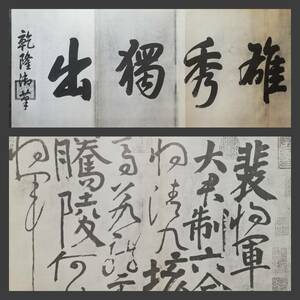 雄秀獨出
乾隆御筆
裴將軍
大君制六合
將清九垓
馬若
騰陵何
將軍